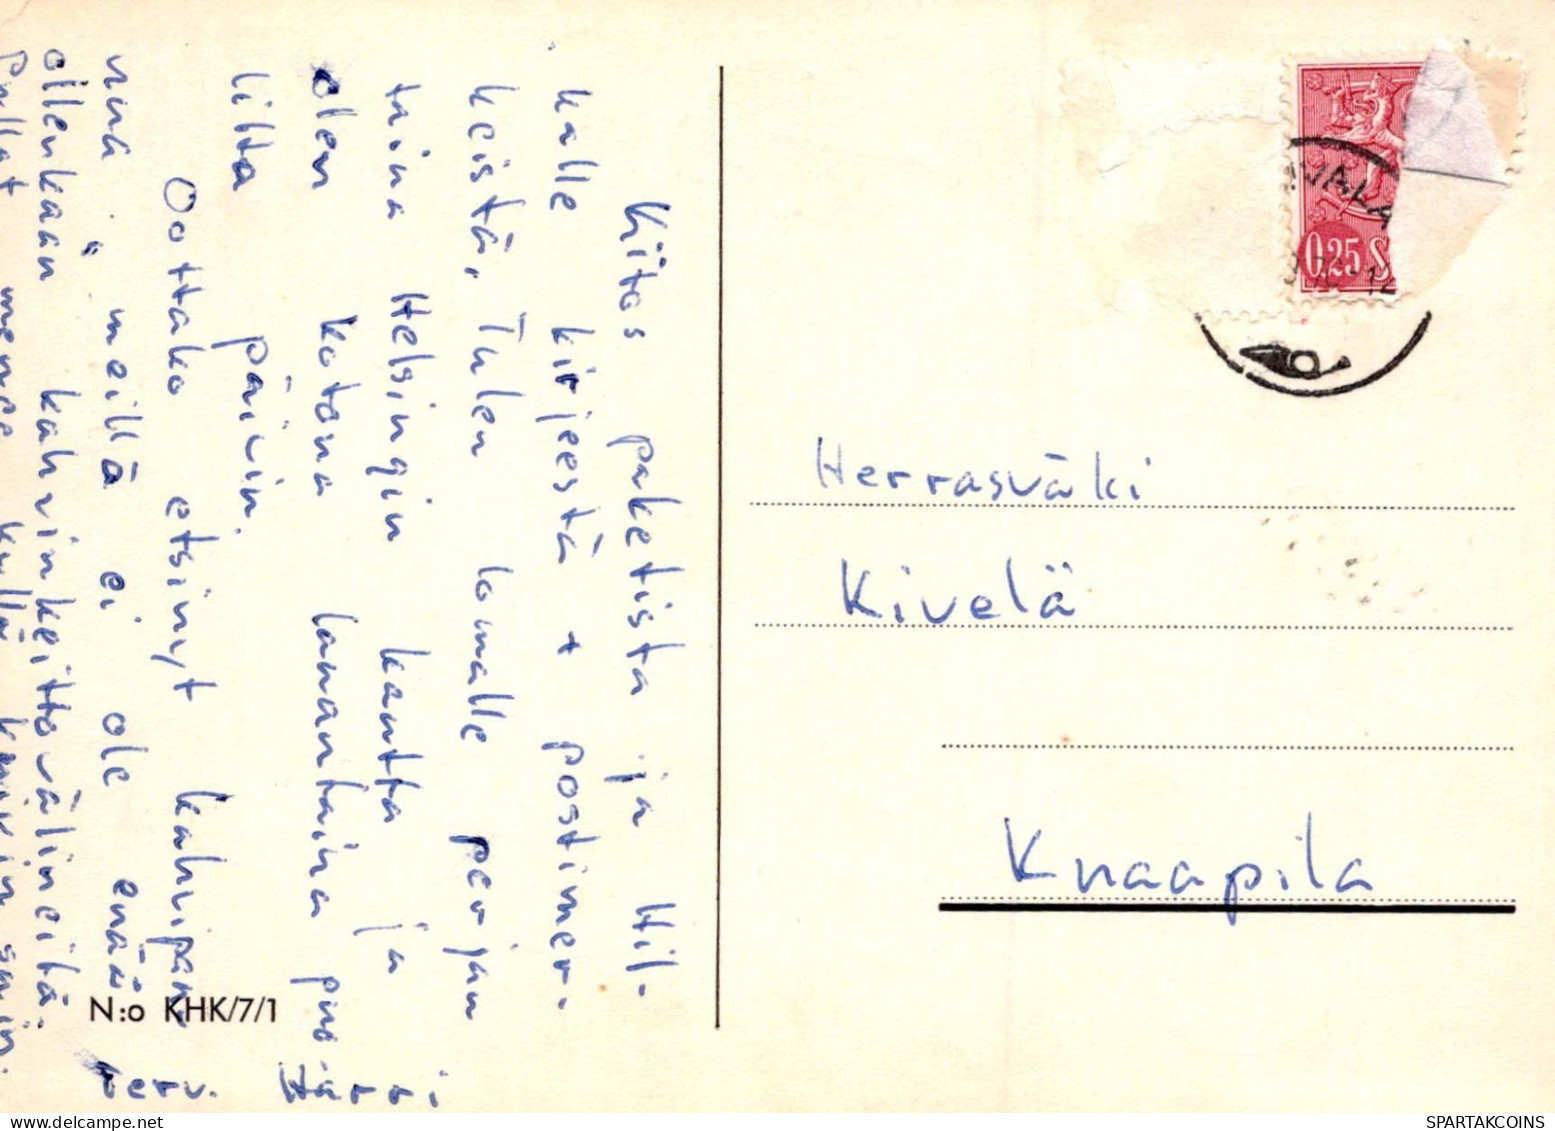 Kiitos paketista ja Hil-
kalle kirjeestä + postimer-
keistä. Tulen lomalle perjan
taina Helsingin kautta ja
olen kotona lauantaina puo-
lilta päivin.
Oottako etsinyt kahvipan
nua, meillä ei ole enää
ollenkaan kahvinkeittovälineitä.
Pullat menee kyllä
terv. Harri
N:o KHK/7/1
0,25
Herrasväki
Kivelä
Knaapila
SPARTAKCOINS